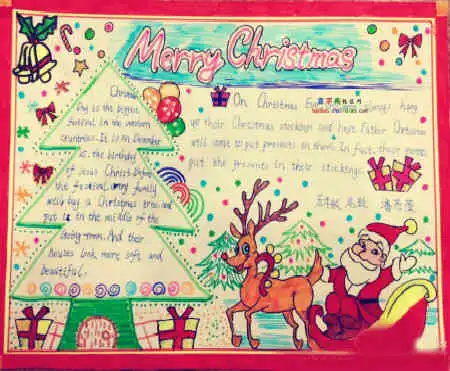 Merry Christmas
Christmas
Day is the biggest
festival in the western
countries. It is on December
is the birthday
of Jesus Christ. Before
the festival, every family
will buy a Christmas tree, and
put it in the middle of the
living-room. And their
houses look more safe and
beautiful.
On Christmas Eve hang
up their Christmas stockings and hope Father Christmas
will come to put presents in them. In fact, their parents
put the presents in their stockings.